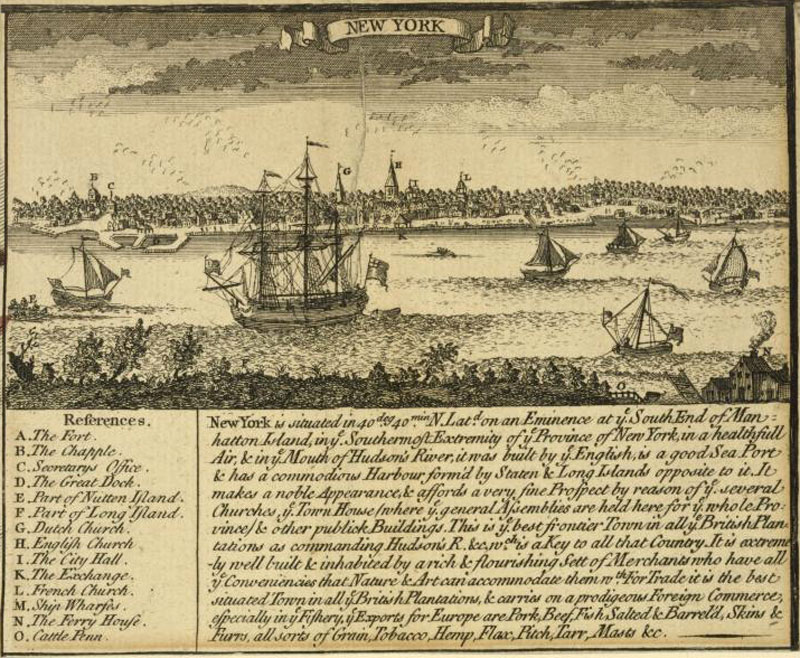 NEW YORK
B
C
G
H
I
L
E
F
N
O
References.
A. The Fort.
B. The Chapple.
C. Secretarys Office.
D. The Great Dock.
E. Part of Nutten Island.
F. Part of Long Island.
G. Dutch Church.
H. English Church
I. The City Hall.
K. The Exchange.
L. French Church.
M. Ship Wharfes.
N. The Ferry House.
O. Cattle Penn.
New York is situated in 40 deg 40 min N. Latd. on an Eminence at ye. South End of Man=
hatton Island, in ye. Southermost Extremity of ye. Province of New York, in a healthfull
Air, & in ye. Mouth of Hudson's River, it was built by ye. English, is a good Sea Port
& has a commodious Harbour form'd by Staten & Long Islands opposite to it. It
makes a noble Appearance, & affords a very fine Prospect by reason of ye. several
Churches, ye. Town House (where ye. general Assemblies are held here for ye. whole Pro=
vince) & other publick Buildings. This is ye. best frontier Town in all ye. British Plan=
tations as commanding Hudson's R. &c. wch. is a Key to all that Country. It is extreme
-ly well built & inhabited by a rich & flourishing Sett of Merchants who have all
ye. Conveniencies that Nature & Art can accommodate them wth. For Trade it is the best
situated Town in all ye. British Plantations, & carries on a prodigeous Foreign Commerce,
especially in ye. Fishery, ye. Exports for Europe are Pork, Beef, Fish, Salted & Barreld, Skins &
Furrs, all sorts of Grain, Tobacco, Hemp, Flax, Pitch, Tarr, Masts &c.